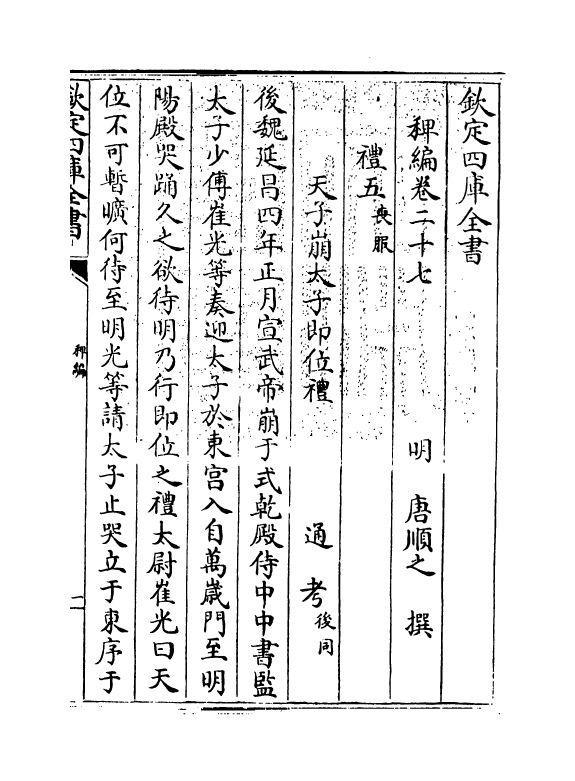 欽定四庫全書
稗編卷二十七 明 唐順之 撰
禮五喪服
天子崩太子即位禮 通考後同
後魏延昌四年正月宣武帝崩于式乾殿侍中中書監
太子少傅崔光等奏迎太子於東宮入自萬歲門至明
陽殿哭踊久之欲待明乃行即位之禮太尉崔光曰天
位不可暫曠何待至明光等請太子止哭立于東序于
欽定四庫全書
稗編